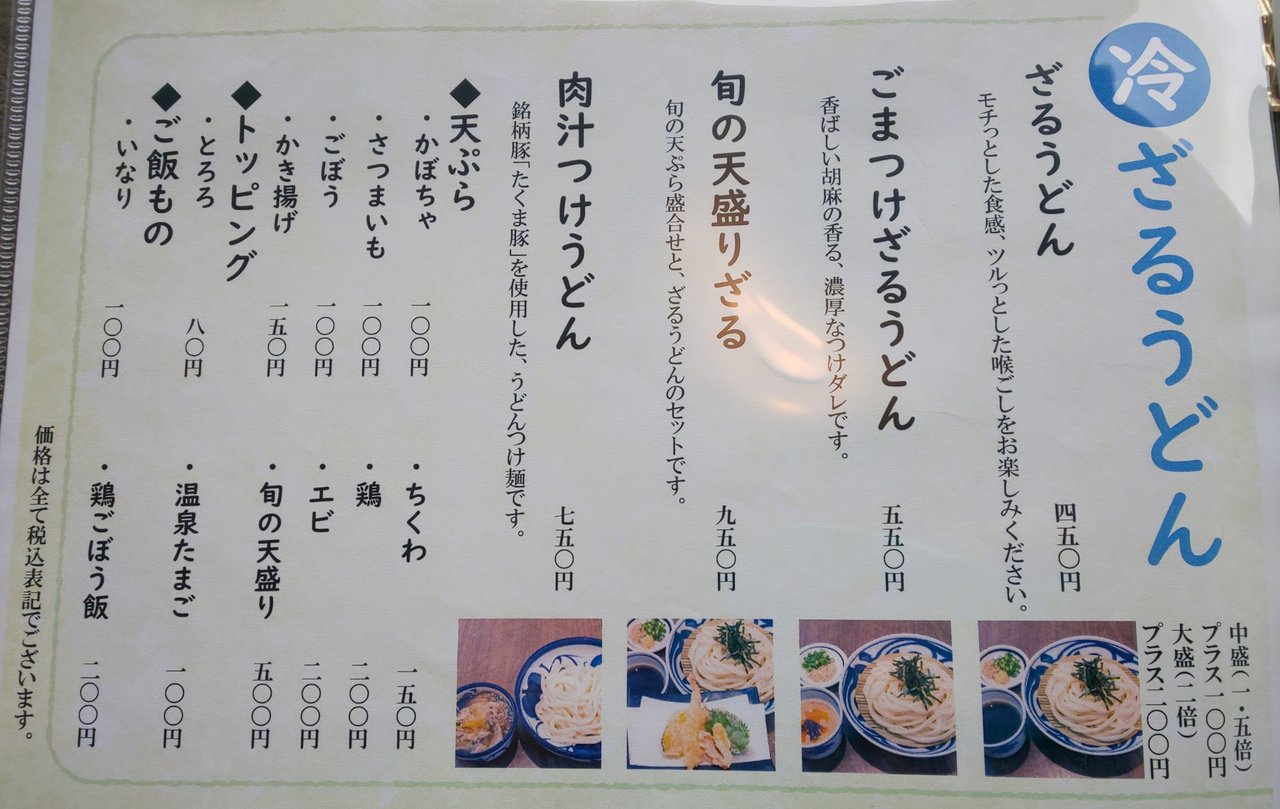 冷
ざるうどん
中盛(一・五倍)
プラス一〇〇円
大盛(二倍)
プラス二〇〇円
ざるうどん
四五〇円
モチっとした食感、ツルっとした喉ごしをお楽しみください。
ごまつけざるうどん
五五〇円
香ばしい胡麻の香る、濃厚なつけダレです。
旬の天盛りざる
九五〇円
旬の天ぷら盛合せと、ざるうどんのセットです。
肉汁つけうどん
七五〇円
銘柄豚「たくま豚」を使用した、うどんつけ麺です。
◆天ぷら
・かぼちゃ 一〇〇円
・ちくわ 一五〇円
・さつまいも 一〇〇円
・鶏 二〇〇円
・ごぼう 一〇〇円
・エビ 二〇〇円
・かき揚げ 一五〇円
・旬の天盛り 五〇〇円
◆トッピング
・とろろ 八〇円
・温泉たまご 一〇〇円
◆ご飯もの
・いなり 一〇〇円
・鶏ごぼう飯 二〇〇円
価格は全て税込表記でございます。